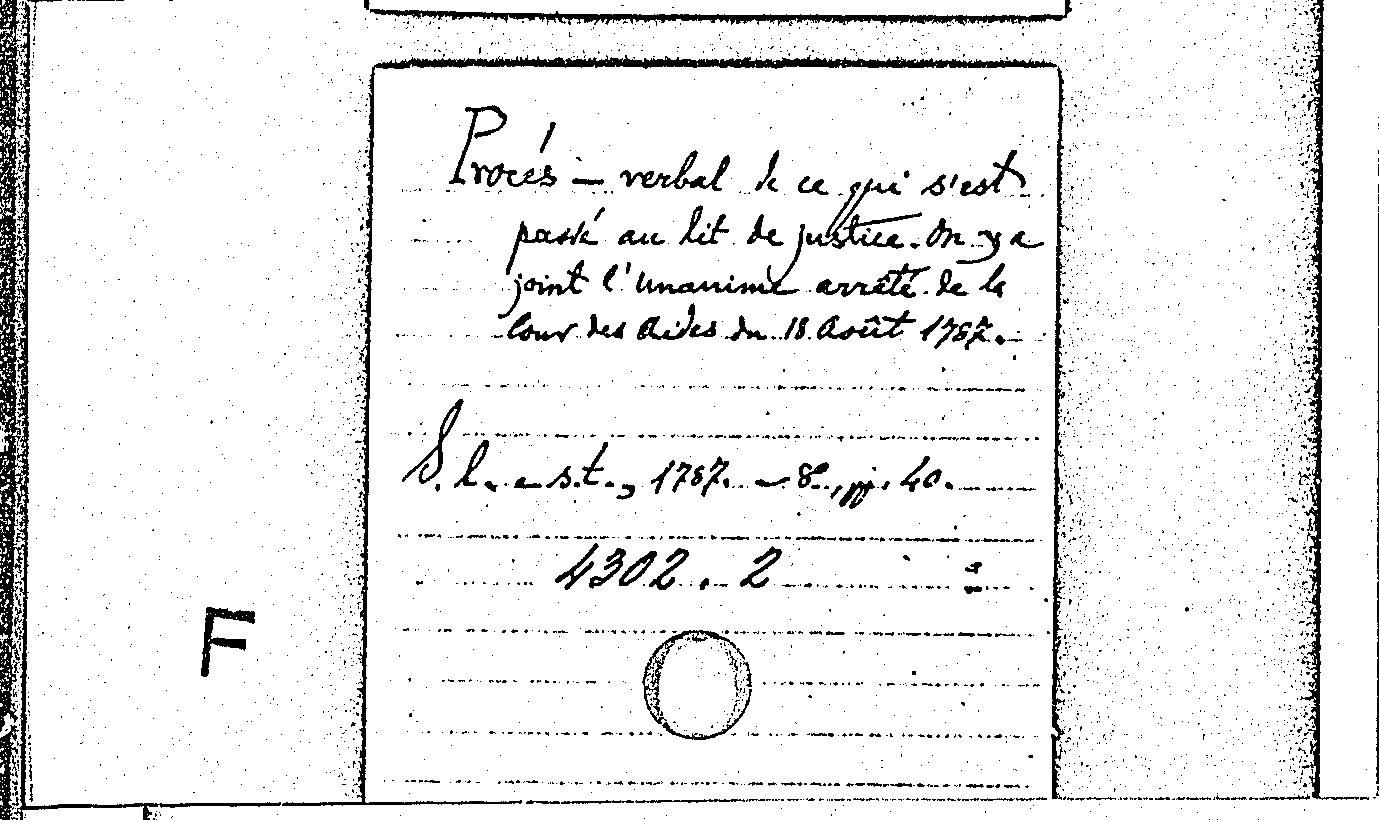 Procés - verbal de ce qui s'est
passé au lit de justice. On y a
joint l'unanime arrêté de la
Cour des Aides du 18 Août 1787.
S. l. e s. t., 1787. - 8º, pp. 40.
4302. 2
F